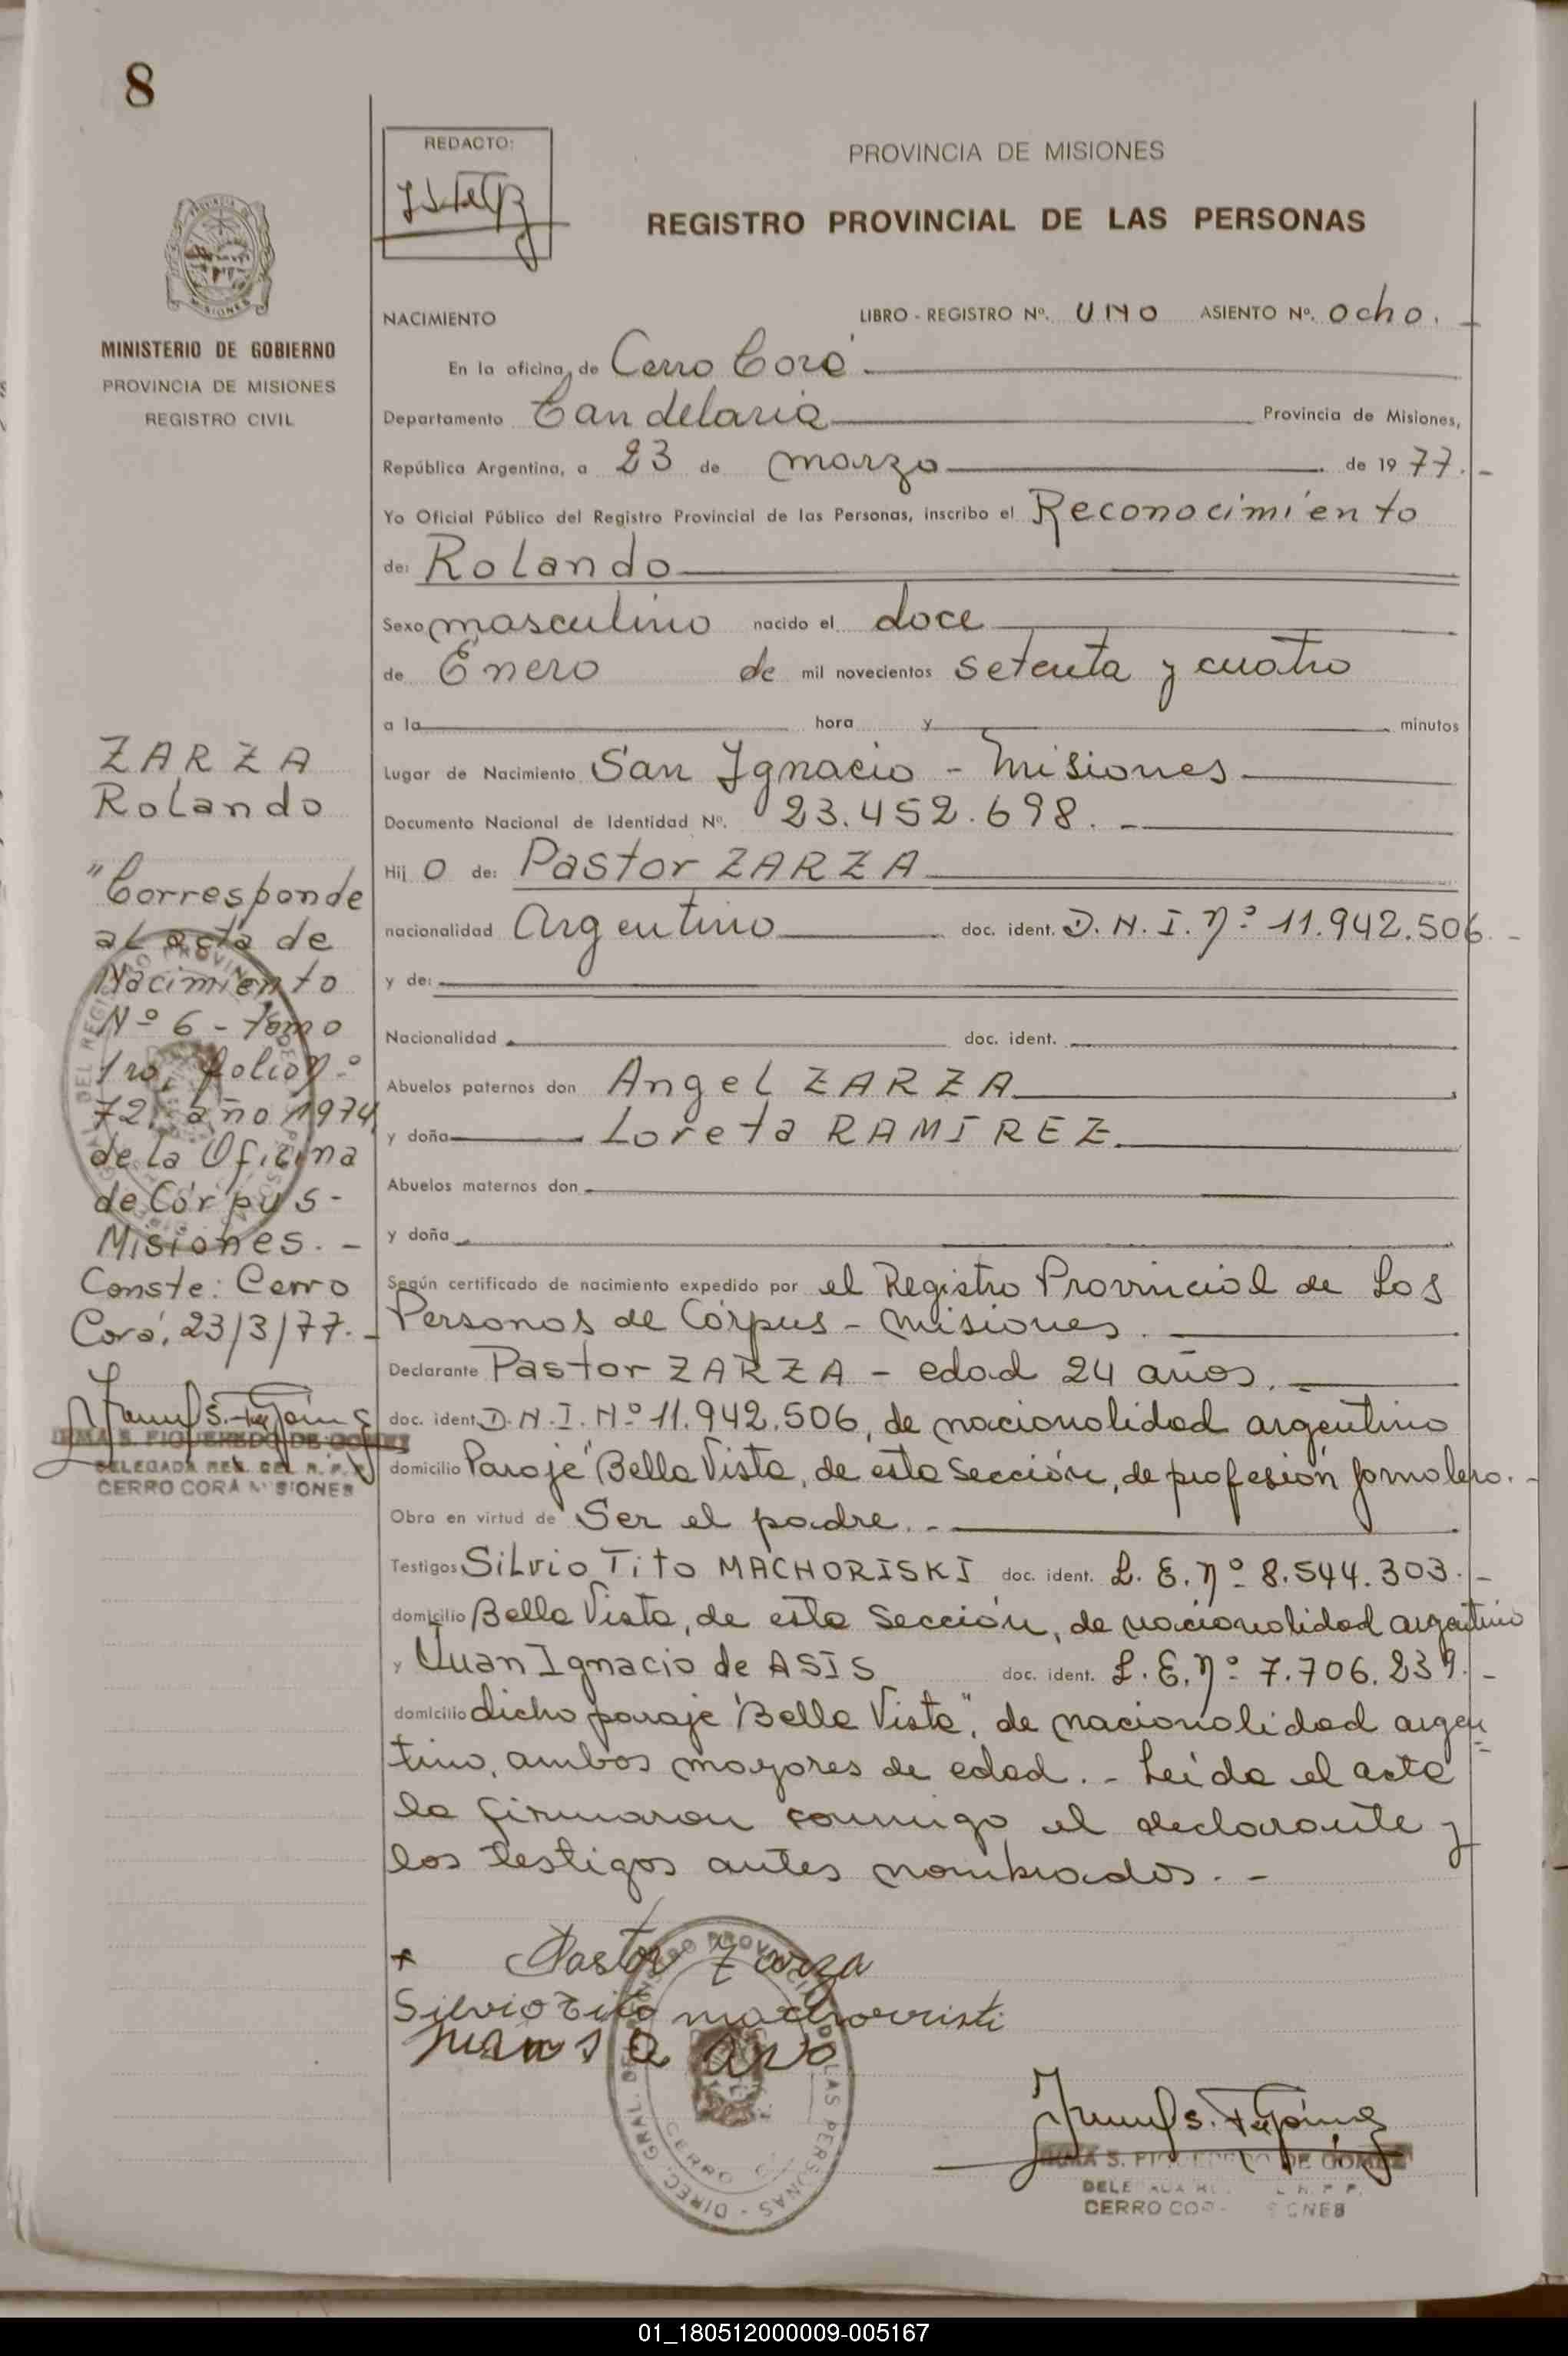 8
REDACTO:
PROVINCIA DE MISIONES
REGISTRO PROVINCIAL DE LAS PERSONAS
MINISTERIO DE GOBIERNO
PROVINCIA DE MISIONES
REGISTRO CIVIL
NACIMIENTO LIBRO - REGISTRO Nº. UNO ASIENTO Nº. Ocho.
En la oficina de Cerro Corá
Departamento Candelaria Provincia de Misiones,
República Argentina, a 23 de marzo de 1977.-
Yo Oficial Público del Registro Provincial de las Personas, inscribo el Reconocimiento
de: Rolando
Sexo masculino nacido el doce
de Enero de mil novecientos setenta y cuatro
a la hora y minutos
Lugar de Nacimiento San Ignacio - Misiones
Documento Nacional de Identidad Nº. 23.452.698.-
Hij o de: Pastor ZARZA
nacionalidad Argentino doc. ident. D.N.I.Nº 11.942.506.-
y de:
Nacionalidad doc. ident.
Abuelos paternos don Angel ZARZA
y doña Loreta RAMIREZ
Abuelos maternos don
y doña
Según certificado de nacimiento expedido por el Registro Provincial de Las
Personas de Córpus - Misiones.
Declarante Pastor ZARZA - edad 24 años.-
doc. ident. D.N.I.Nº 11.942.506, de nacionalidad argentino
domicilio Paraje "Bella Vista, de esta Sección, de profesión jornalero.-
Obra en virtud de Ser el padre.-
Testigos Silvio Tito MACHORISKI doc. ident. L.E.Nº 8.544.303.-
domicilio Bella Vista, de esta Sección, de nacionalidad argentino
y Juan Ignacio de ASIS doc. ident. L.E.Nº 7.706.239.-
domicilio dicho paraje "Bella Vista", de nacionalidad argen
tino, ambos mayores de edad.- Leída el acta
la firmaron conmigo el declarante y
los testigos antes nombrados.-
ZARZA
Rolando
"Corresponde
al acta de
Nacimiento
Nº 6 - tomo
1ro, folio Nº
72, año 1974,
de la Oficina
de Córpus -
Misiones.-
Conste: Cerro
Corá, 23/3/77.-
IRMA S. FIGUEREDO DE GOMEZ
DELEGADA REG. DEL R. P. P.
CERRO CORA MISIONES
Pastor Zarza
Silvio Tito machorriski
DIREC. GRAL. DEL REGISTRO PROVINCIAL DE LAS PERSONAS
CERRO
IRMA S. FIGUEREDO DE GOMEZ
CERRO CORA
01_180512000009-005167